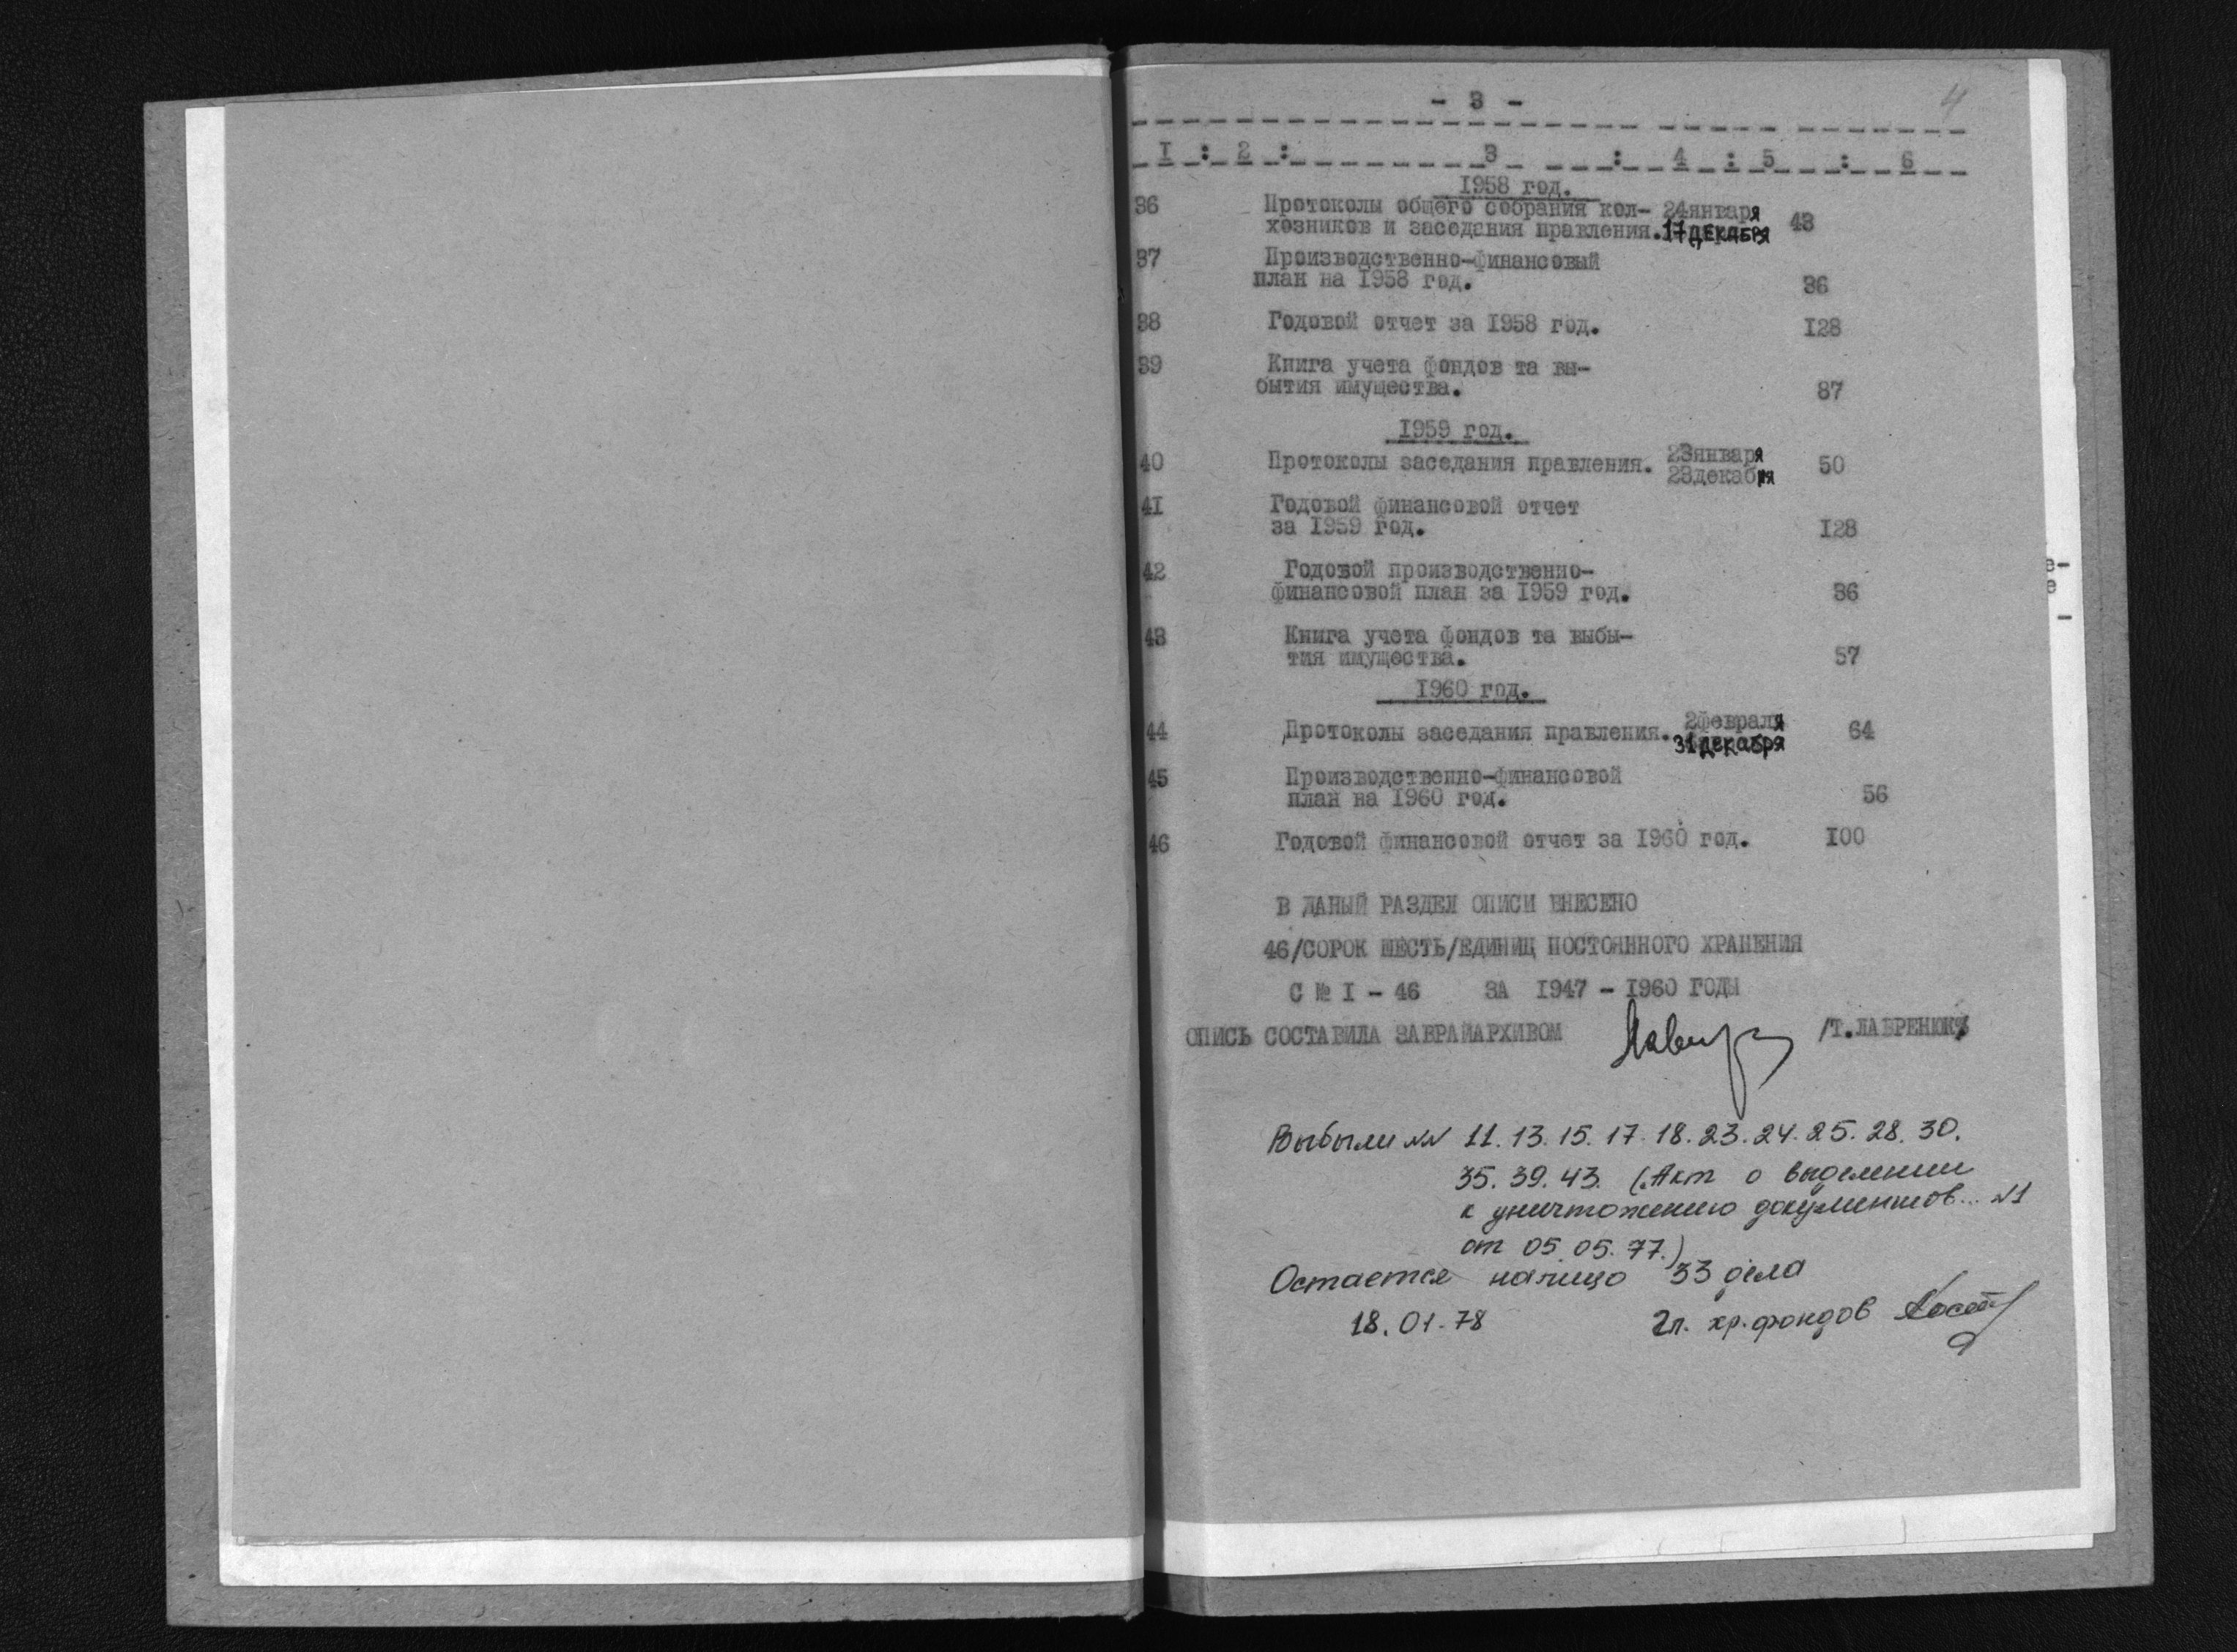 - 3 -
4
I : 2 : 3 : 4 : 5 : 6
1958 год.
36 Протоколы общего собрания кол- 24января 43
хозников и заседания правления. 17 ДЕКАБРЯ
37 Производственно-финансовый
план на 1958 год. 36
38 Годовой отчет за 1958 год. 128
39 Книга учета фондов та вы-
бытия имущества. 87
1959 год.
40 Протоколы заседания правления. 23января 50
23декабря
41 Годовой финансовой отчет
за 1959 год. 128
42 Годовой производственно-
финансовой план за 1959 год. 36
43 Книга учета фондов та выбы-
тия имущества. 57
1960 год.
44 Протоколы заседания правления. 2февраля 64
31декабря
45 Производственно-финансовой
план на 1960 год. 56
46 Годовой финансовой отчет за 1960 год. 100
В ДАНЫЙ РАЗДЕЛ ОПИСИ ВНЕСЕНО
46/СОРОК ШЕСТЬ/ЕДИНИЦ ПОСТОЯННОГО ХРАНЕНИЯ
С № I - 46 ЗА 1947 - 1960 ГОДЫ
ОПИСЬ СОСТАВИЛА ЗАВРАЙАРХИВОМ /Т.ЛАВРЕНЮК/
Выбыли №№ 11. 13. 15. 17. 18. 23. 24. 25. 28. 30.
35. 39. 43. (Акт о выделении
к уничтожению документов... №1
от 05.05.77.)
Остается налицо 33 дела
18.01.78 Гл. хр. фондов